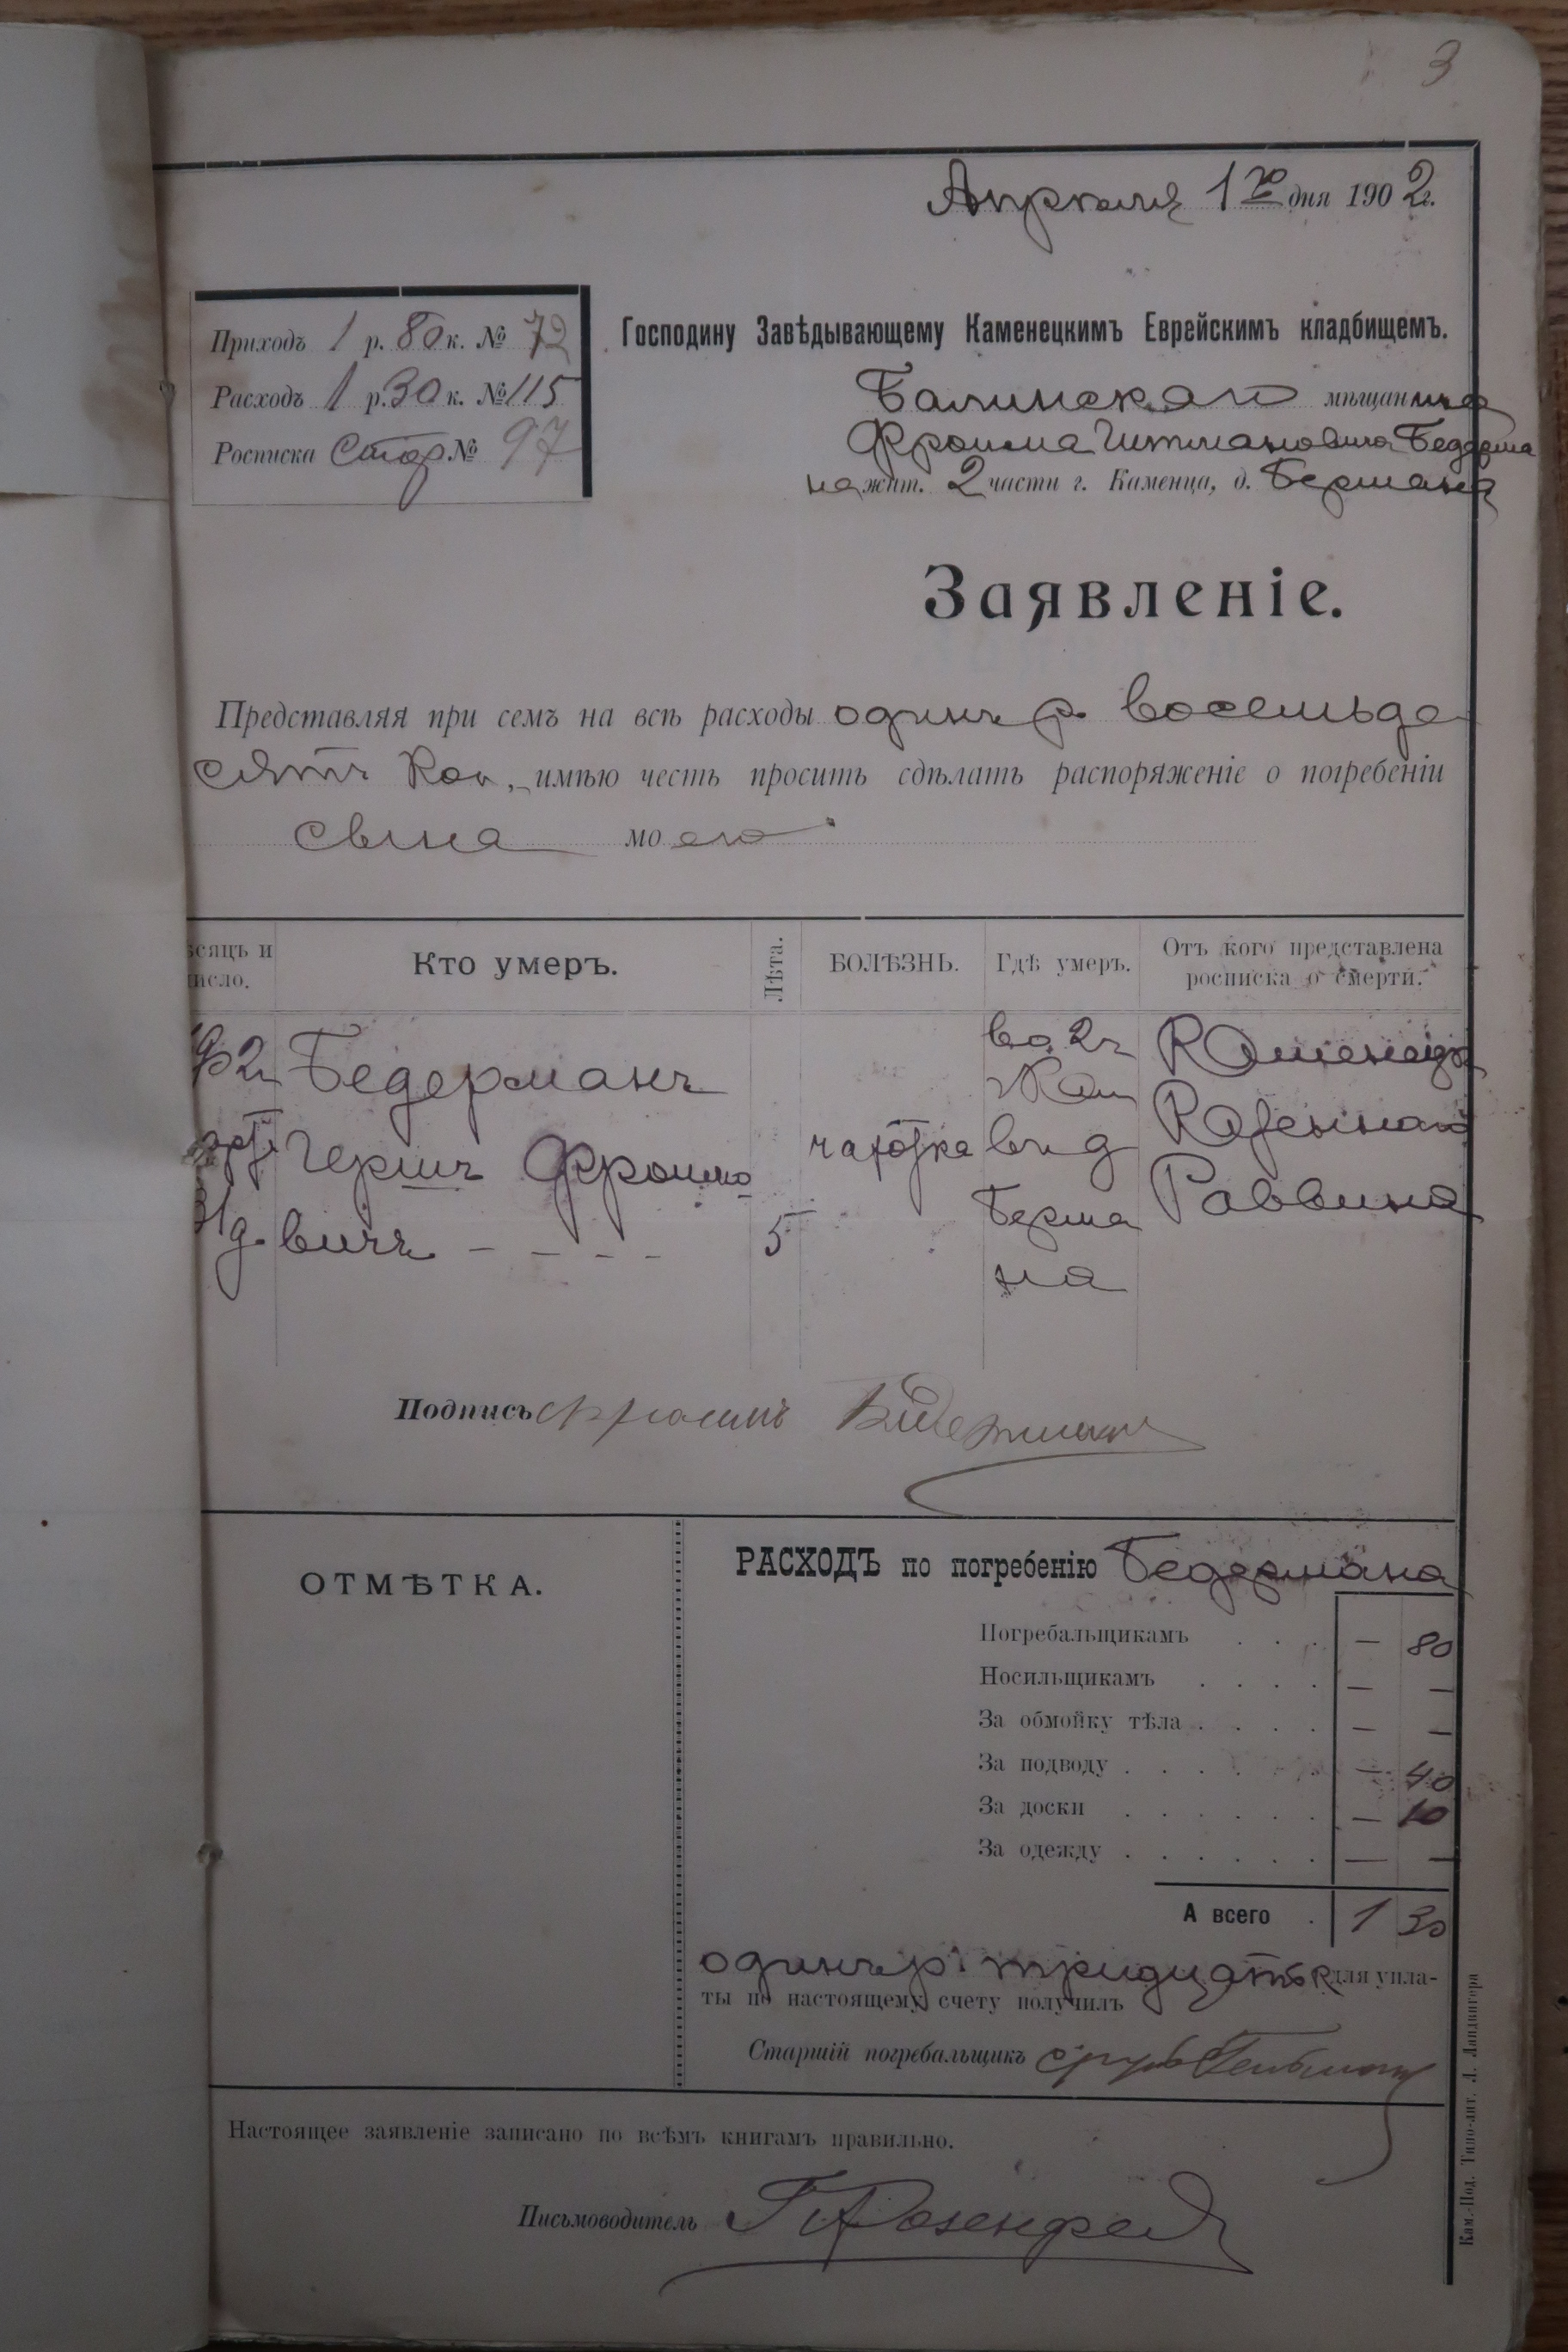 3
Апреля 1го дня 1902г.
Приходъ 1 р. 80 к. № 72
Расходъ 1 р. 30 к. № 115
Росписка Стор № 97
Господину Завѣдывающему Каменецкимъ Еврейскимъ кладбищемъ.
Балинскаго мѣщанина
Фроима Бедерма
на жит. 2 части г. Каменца, д. Бермана
Заявленіе.
Представляя при семъ на всѣ расходы одинъ р. восемьде
сятъ Коп., имѣю честь просить сдѣлать распоряженіе о погребеніи
сына моего
ѣсяцъ и число.
Кто умеръ.
Лѣта.
БОЛѢЗНЬ.
Гдѣ умеръ.
Отъ кого представлена росписка о смерти.
Бедерманъ
Гершъ Фроимо
вичъ - - - -
5
чахотка
во 2ч
гКам
въ д
Берма
на
Каменецк
Казеннаго
Раввина
Подпись Фроимъ Бидерман
ОТМѢТКА.
РАСХОДЪ по погребенію Бедермана
Погребальщикамъ . . . — 80
Носильщикамъ . . . . — —
За обмойку тѣла . . . . — —
За подводу . . . . . . — 40
За доски . . . . . . — 10
За одежду . . . . . . — —
А всего . 1 30
одинъ р. тридцать к для упла-
ты по настоящему счету получилъ
Старшій погребальщикъ
Настоящее заявленіе записано по всѣмъ книгамъ правильно.
Письмоводитель Розенфельд
Кам.-Под. Типо-лит. Л. Ландвигера